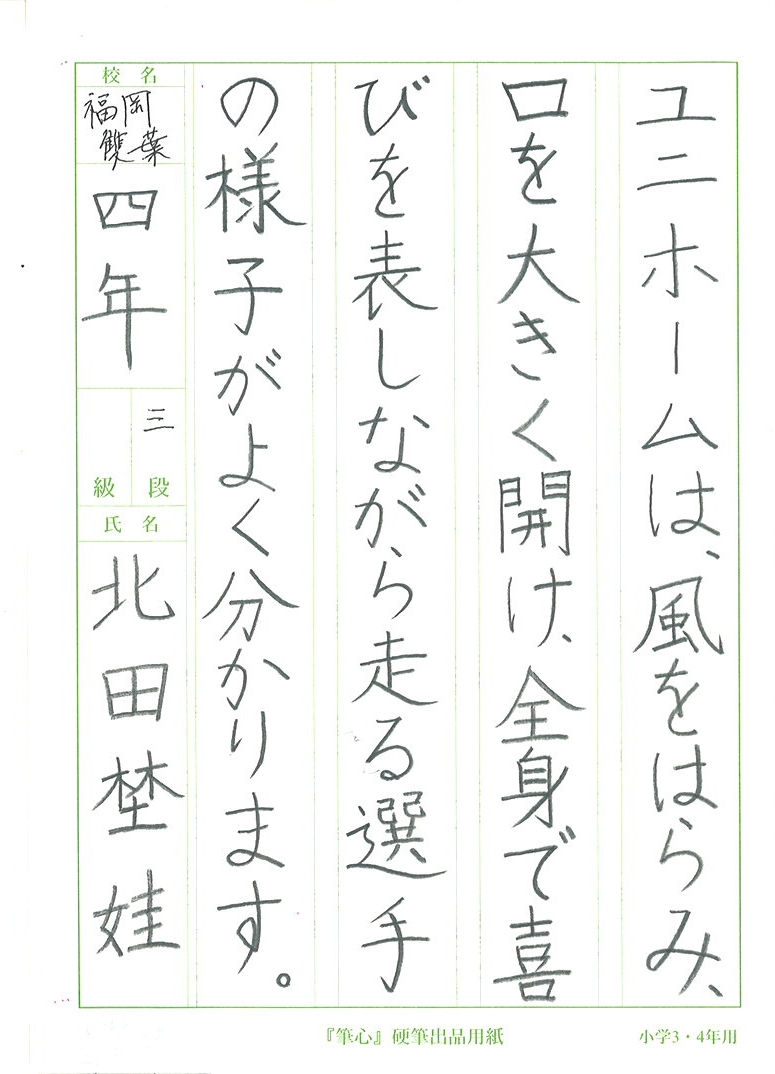 ユニホームは、風をはらみ、
口を大きく開け、全身で喜
びを表しながら走る選手
の様子がよく分かります。
校名
福岡
雙葉
四年
三
級 段
氏名
北田埜娃
『筆心』硬筆出品用紙
小学3・4年用